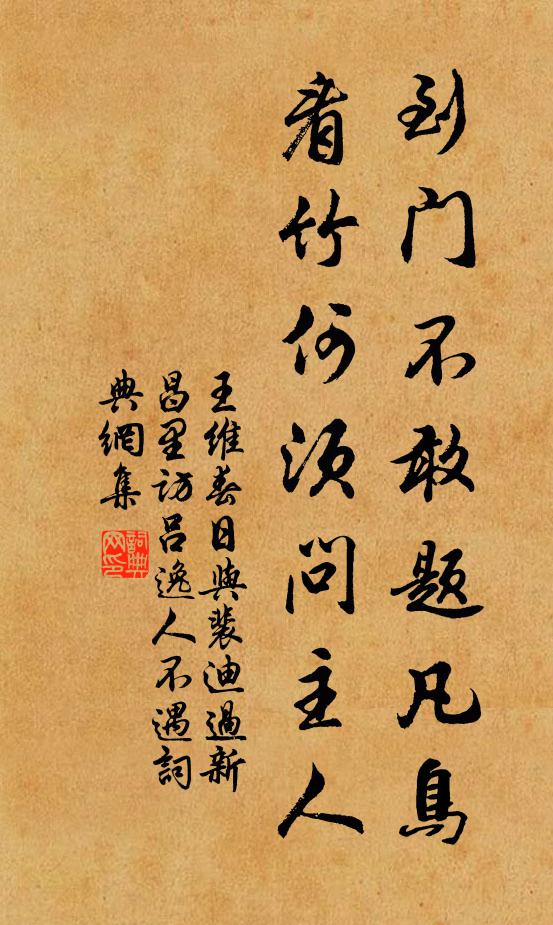 到门不敢题凡鳥
看竹何须问主人
王維春日與裴迪過新
昌里訪吕逸人不遇詞
典網集
詞典
网印